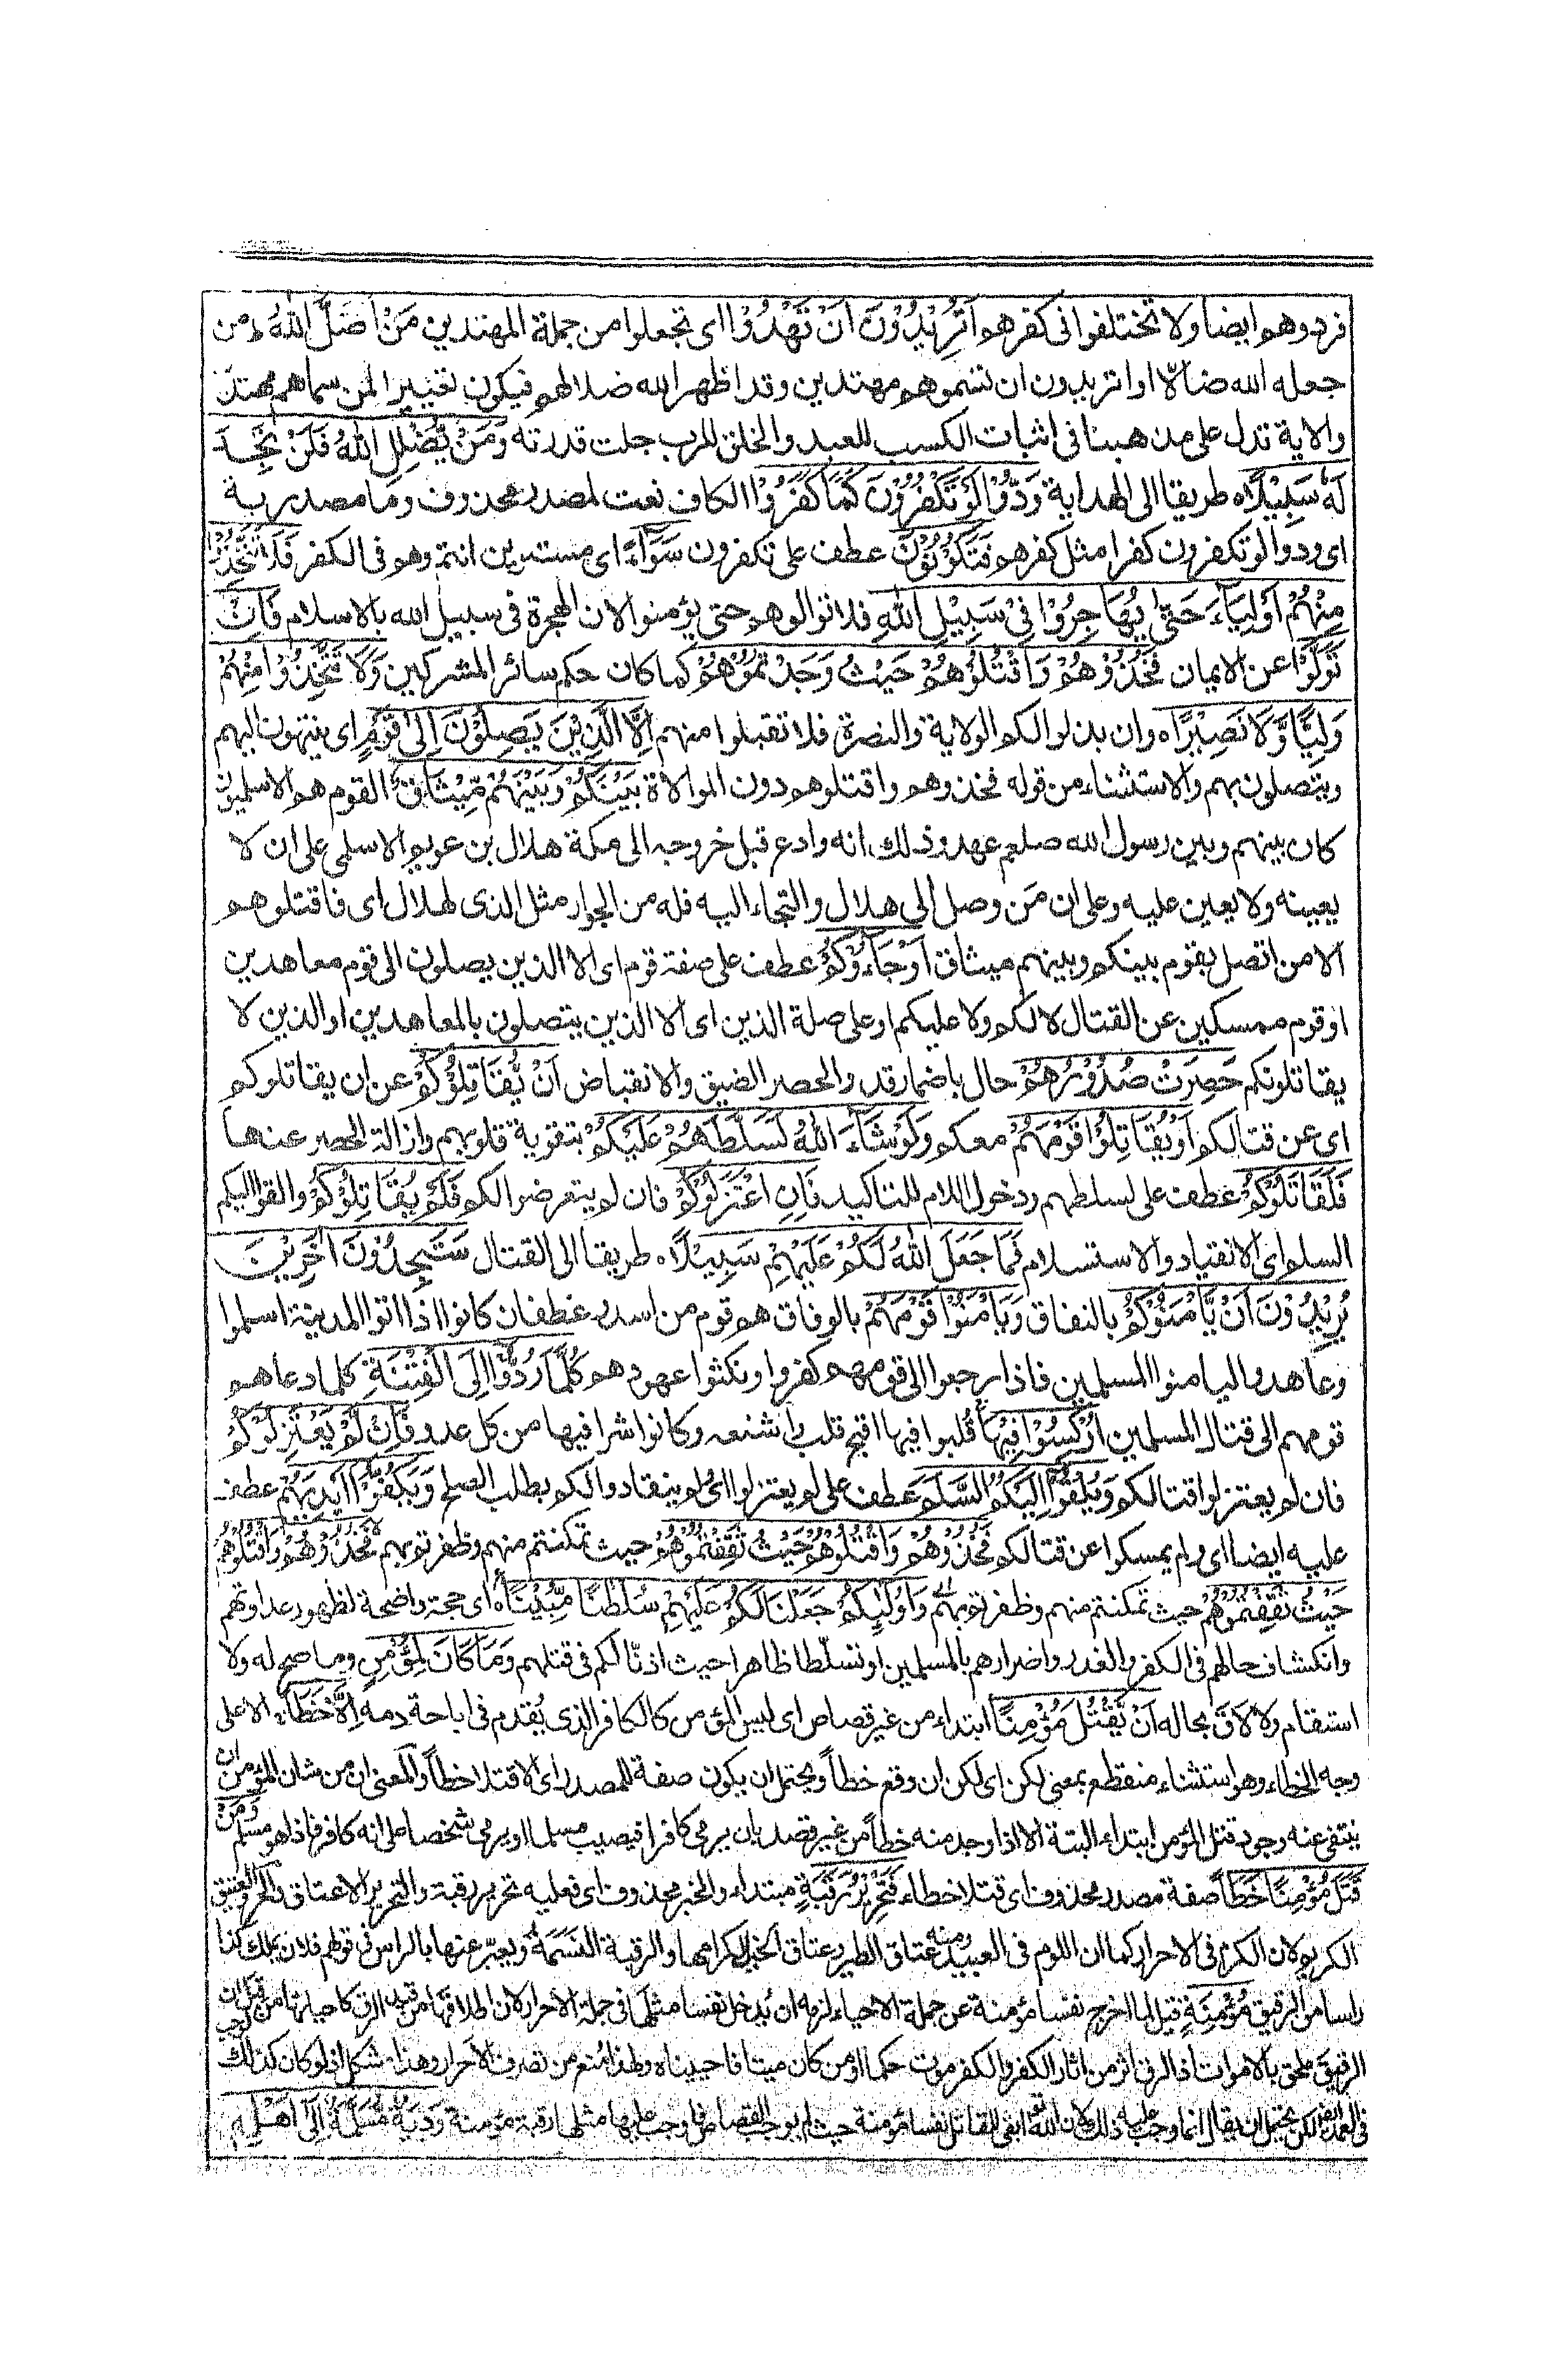 فردوهم ايضا ولا تختلفوا فى كفرهم اَتُرِيْدُوْنَ اَنْ تَهْدُوْا اى تجعلوا من جملة المهتدين مَنْ اَضَلَّ اللّٰهُ ط من
جعله الله ضالّا او اتريدون ان تسموهم مهتدين وقد اظهر الله ضلالهم فيكون تعييرا لمن سماهم مهتدين
والاية تدل على مذهبنا فى اثبات الكسب للعبد والخلق للرب جلت قدرته وَمَنْ يُّضْلِلِ اللّٰهُ فَلَنْ تَجِدَ
لَهٗ سَبِيْلًا ه طريقا الى الهداية وَدُّوْا لَوْ تَكْفُرُوْنَ كَمَا كَفَرُوْا الكاف نعت لمصدر محذوف وما مصدرية
اى ودوا لو تكفرون كفرا مثل كفرهم فَتَكُوْنُوْنَ عطف على تكفرون سَوَآءً اى مستوين انتم وهم فى الكفر فَلَا تَتَّخِذُوْا
مِنْهُمْ اَوْلِيَآءَ حَتّٰى يُهَاجِرُوْا فِيْ سَبِيْلِ اللّٰهِ فلا توالوهم حتى يؤمنوا لان الهجرة فى سبيل الله بالاسلام فَاِنْ
تَوَلَّوْا عن الايمان فَخُذُوْهُمْ وَاقْتُلُوْهُمْ حَيْثُ وَجَدْتُّمُوْهُمْ كما كان حكم سائر المشركين وَلَا تَتَّخِذُوْا مِنْهُمْ
وَلِيًّا وَّلَا نَصِيْرًا ه وان بذلوا لكم الولاية والنصرة فلا تقبلوا منهم اِلَّا الَّذِيْنَ يَصِلُوْنَ اِلٰى قَوْمٍ اى ينتهون اليهم
ويتصلون بهم والاستثناء من قوله فخذوهم واقتلوهم دون الموالاة بَيْنَكُمْ وَبَيْنَهُمْ مِّيْثَاقٌ القوم هم الاسلميون
كان بينهم وبين رسول الله صلعم عهد وذلك انه وادع قبل خروجه الى مكة هلال بن عويم الاسلمى على ان لا
يعينه ولا يعين عليه وعلى ان مَن وصل الى هلال والتجاء اليه فله من الجوار مثل الذى لهلال اى فاقتلوهم
الا من اتصل بقوم بينكم وبينهم ميثاق اَوْ جَآءُوْكُمْ عطف على صفة قوم اى الا الذين يصلون الى قوم معاهدين
او قوم ممسكين عن القتال لا لكم ولا عليكم او على صلة الذين اى الا الذين يتصلون بالمعاهدين او الذين لا
يقاتلونكم حَصِرَتْ صُدُوْرُهُمْ حال باضمار قد والحصر الضيق والانقباض اَنْ يُّقَاتِلُوْكُمْ عن ان يقاتلوكم
اى عن قتالكم اَوْ يُقَاتِلُوْا قَوْمَهُمْ معكم وَلَوْ شَآءَ اللّٰهُ لَسَلَّطَهُمْ عَلَيْكُمْ بتقوية قلوبهم وازالة الحصر عنها
فَلَقَاتَلُوْكُمْ عطف على لسلطهم ودخول اللام للتاكيد فَاِنِ اعْتَزَلُوْكُمْ فان لم يتعرضوا لكم فَلَمْ يُقَاتِلُوْكُمْ والقوا اليكم
السلم اى الانقياد والاستسلام فَمَا جَعَلَ اللّٰهُ لَكُمْ عَلَيْهِمْ سَبِيْلًا ه طريقا الى القتال سَتَجِدُوْنَ اٰخَرِيْنَ
يُرِيْدُوْنَ اَنْ يَّاْمَنُوْكُمْ بالنفاق وَيَاْمَنُوْا قَوْمَهُمْ بالوفاق هم قوم من اسد وغطفان كانوا اذا اتوا المدينة اسلموا
وعاهدوا ليامنوا المسلمين فاذا رجعوا الى قومهم كفروا ونكثوا عهودهم كُلَّمَا رُدُّوْٓا اِلَى الْفِتْنَةِ كلما دعاهم
قومهم الى قتال المسلمين اُرْكِسُوْا فِيْهَا قُلبوا فيها اقبح قلب واشنعه وكانوا شرا فيها من كل عدو فَاِنْ لَّمْ يَعْتَزِلُوْكُمْ
فان لم يعتزلوا قتالكم وَيُلْقُوْٓا اِلَيْكُمُ السَّلَمَ عطف على لم يعتزلوا اى لم ينقادوا لكم بطلب الصلح وَيَكُفُّوْٓا اَيْدِيَهُمْ عطف
عليه ايضا اى ولم يمسكوا عن قتالكم فَخُذُوْهُمْ وَاقْتُلُوْهُمْ حَيْثُ ثَقِفْتُمُوْهُمْ حيث تمكنتم منهم وظفرتم بهم فَخُذُوْهُمْ وَاقْتُلُوْهُمْ
حَيْثُ ثَقِفْتُمُوْهُمْ حيث تمكنتم منهم وظفرتم بهم وَاُولٰٓئِكُمْ جَعَلْنَا لَكُمْ عَلَيْهِمْ سُلْطٰنًا مُّبِيْنًا ه اى حجة واضحة لظهور عداوتهم
وانكشاف حالهم فى الكفر والغدر واضرارهم بالمسلمين او تسلّطا ظاهرا حيث اذنّا لكم فى قتلهم وَمَا كَانَ لِمُؤْمِنٍ وما صح له ولا
استقام ولا لاق بحاله اَنْ يَّقْتُلَ مُؤْمِنًا ابتداء من غير قصاص اى ليس المؤمن كالكافر الذى يُقدم فى اباحة دمه اِلَّا خَطَأً الا على
وجه الخطاء وهو استثناء منقطع بمعنى لكن اى لكن ان وقع خطأً ويحتمل ان يكون صفة للمصدر اى الا قتلا خطأً والمعنى ان من شان المؤمن ان
ينتفى عنه وجود قتل المؤمن ابتداء البتة الا اذا وجد منه خطأً من غير قصد بان يرمى كافرا فيصيب مسلما او يرمى شخصا على انه كافر فاذا هو مسلم وَمَنْ
قَتَلَ مُؤْمِنًا خَطَأً صفة مصدر محذوف اى قتلا خطاء فَتَحْرِيْرُ رَقَبَةٍ مبتداء والخبر محذوف اى فعليه تحرير رقبة والتحرير الاعتاق والحر والعتيق
الكريم لان الكرم فى الاحرار كما ان اللوم فى العبيد ومنه عتاق الطير وعتاق الخيل لكرامها والرقبة النسمة ويعبّر عنها بالراس فى قولهم فلان يملك كذا
راسا من الرقيق مُؤْمِنَةٍ قيل لما اخرج نفسا مؤمنة عن جملة الاحياء لزمه ان يُدخل نفسا مثلها فى جملة الاحرار لان اطلاقها من قيد الرق كاحيائها من قبل ان
الرقيق ملحق بالاموات اذ الرق اثر من اثار الكفر والكفر موت حكما اومن كان ميتا فاحييناه ولهذا مُنع من تصرف الاحرار وهذا مشكل اذ لو كان كذالك لوجب
فى العمد ايضا لكن يحتمل ان يقال انما وجب عليه ذلك لان الله تع ابقى للقاتل نفسا مؤمنة حيث لم يوجب القصاص فاوجب عليها مثلها رقبة مؤمنة وَدِيَةٌ مُّسَلَّمَةٌ اِلٰٓى اَهْلِهٖ